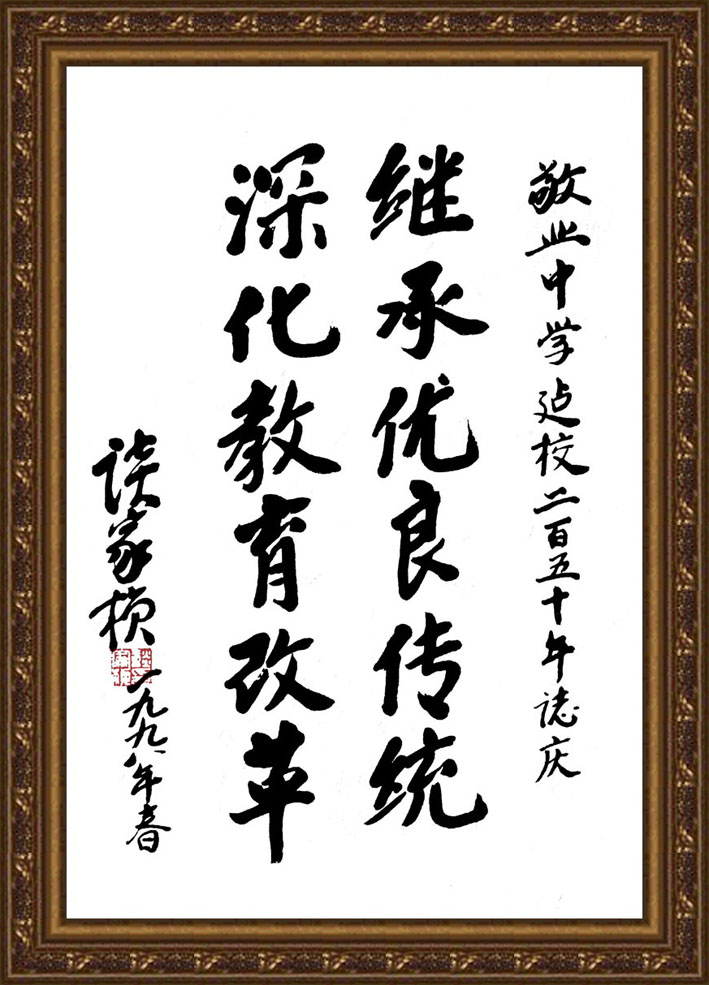 敬业中学建校二百五十年誌庆
继承优良传统
深化教育改革
谈家桢
一九九八年春